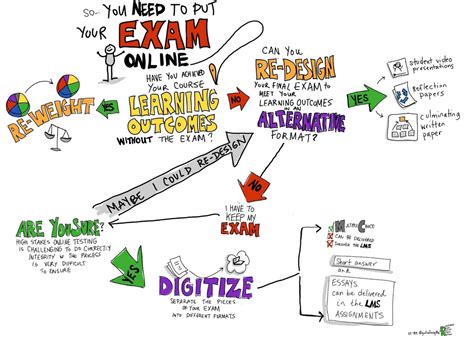 So... YOU NEED TO PUT
YOUR EXAM
ONLINE
HAVE YOU ACHIEVED
YOUR COURSE
LEARNING
OUTCOMES
WITHOUT THE EXAM?
YES
RE-WEIGHT
NO
CAN YOU
RE-DESIGN
YOUR FINAL EXAM TO
MEET YOUR
LEARNING OUTCOMES
IN AN
ALTERNATIVE
FORMAT?
YES
student video
presentations
reflection
papers
culminating
written
paper
MAYBE I COULD RE-DESIGN
NO
I HAVE TO
KEEP MY
EXAM
ARE YOU SURE?
HIGH STAKES ONLINE TESTING
IS CHALLENGING TO DO CORRECTLY
INTEGRITY IN THE PROCESS
IS VERY DIFFICULT
TO ENSURE
YES
DIGITIZE
SEPARATE THE PIECES
OF YOUR EXAM
INTO DIFFERENT FORMATS
MULTIPLE CHOICE
CAN BE DELIVERED
THROUGH THE LMS
Short answer
and
ESSAYS
can be delivered
in the LMS
ASSIGNMENTS